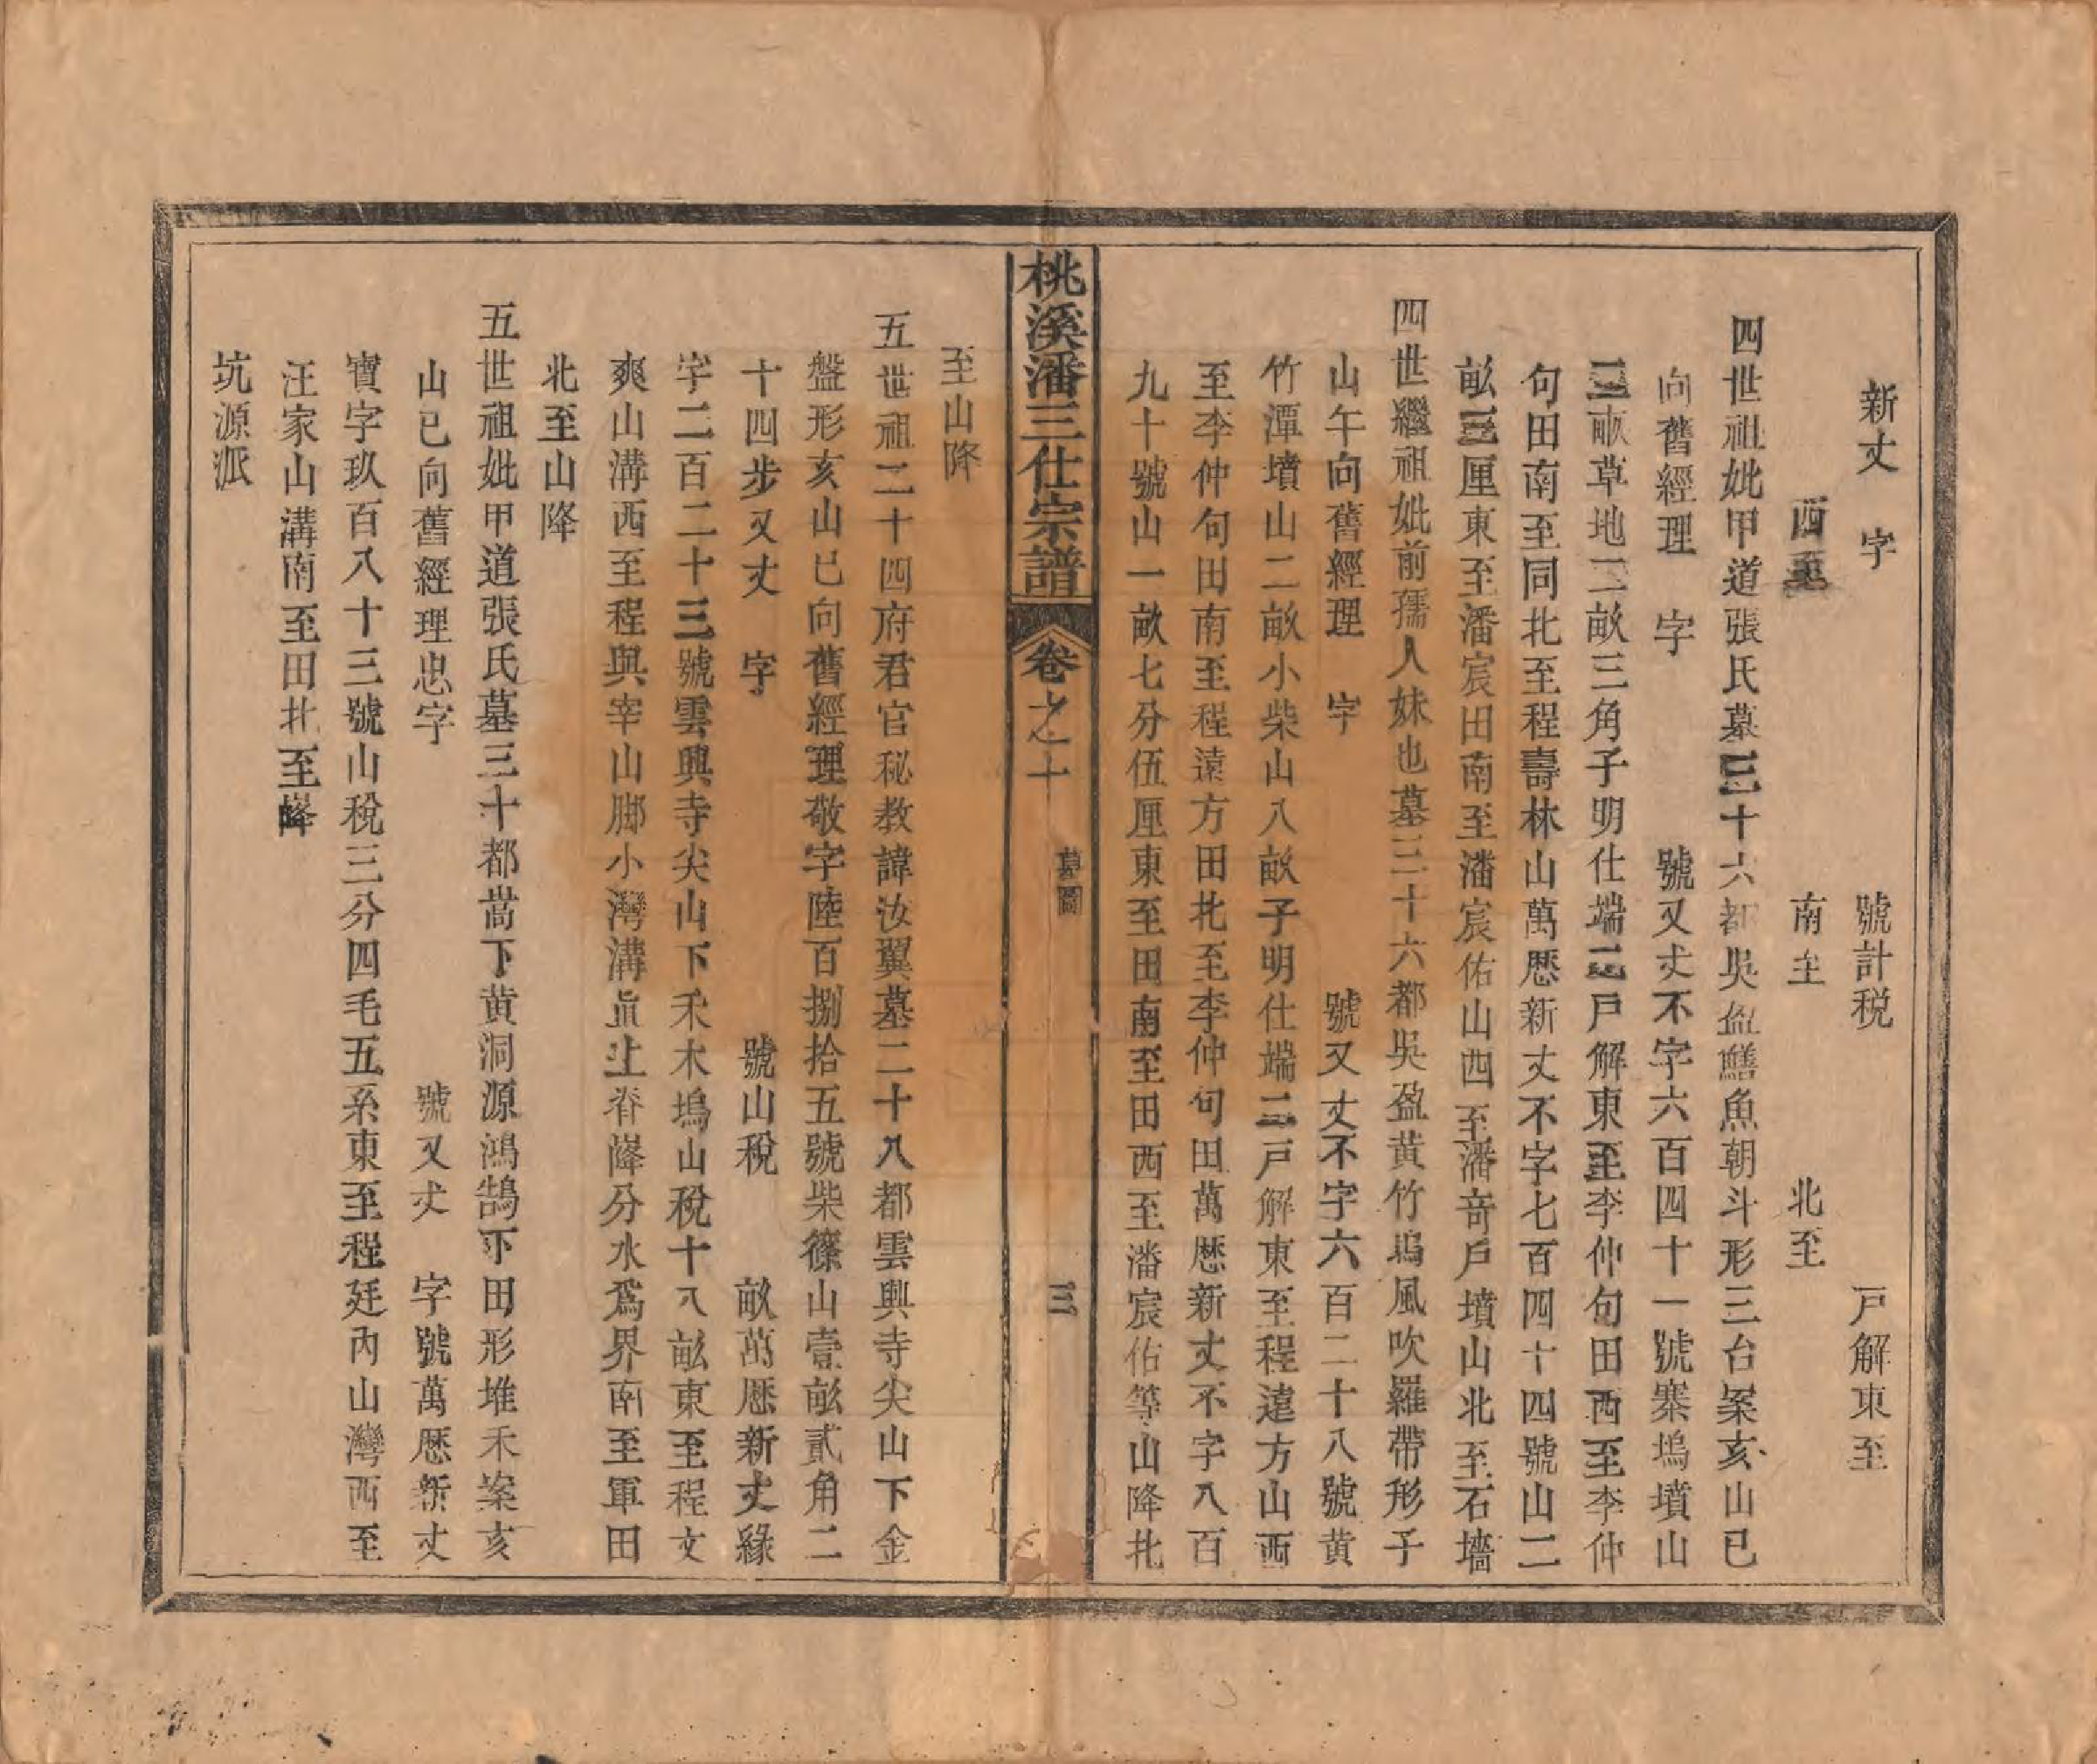 新丈　字　　　號計稅　　　戶解東至
西至　　　南至　　　北至
四世祖妣甲道張氏墓三十六都吳盈鱔魚朝斗形三台案亥山巳
向舊經理　字　　　號又丈不字六百四十一號寨塢墳山
三畝草地二畝三角子明仕端二戶解東至李仲句田西至李仲
句田南至同北至程壽林山萬歷新丈不字七百四十四號山二
畝三厘東至潘宸田南至潘宸佑山西至潘竒戶墳山北至石墻
四世繼祖妣前孺人妹也墓三十六都吳盈黃竹塢風吹羅帶形子
山午向舊經理　字　　　號又丈不字六百二十八號黃
竹潭墳山二畝小柴山八畝子明仕端二戶解東至程遠方山西
至李仲句田南至程遠方田北至李仲句田萬歷新丈不字八百
九十號山一畝七分伍厘東至田南至田西至潘宸佑等山降北
桃溪潘三仕宗譜　卷之十　墓圖　三
至山降
五世祖二十四府君官秘教諱汝翼墓二十八都雲興寺尖山下金
盤形亥山巳向舊經理敬字陸百捌拾五號柴篠山壹畝貳角二
十四步又丈　字　　　號山稅　　畝萬歷新丈緣
字二百二十三號雲興寺尖山下禾木塢山稅十八畝東至程文
爽山溝西至程與宰山脚小灣溝直上脊降分水爲界南至軍田
北至山降
五世祖妣甲道張氏墓三十都嵩下黃洞源鴻鵠下田形堆禾案亥
山巳向舊經理忠字　　　號又丈　字號萬歷新丈
寶字玖百八十三號山稅三分四毛五系東至程廷內山灣西至
汪家山溝南至田北至峰
坑源派